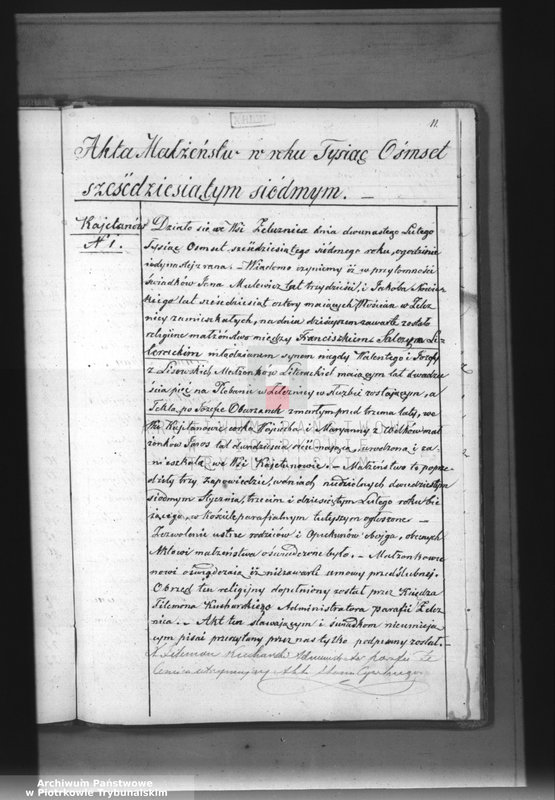 11.
Akta Małżeństw w roku Tysiąc Ośmset
sześćdziesiątym siódmym. —
Kajetanów
N 1.
Działo się we Wsi Żeleznica dnia dwunastego Lutego
Tysiąc Ośmset sześćdziesiątego siódmego roku, o godzinie
jedynastej z rana. — Wiadomo czynimy iż w przytomności
świadków Jana Mulewicz lat trzydzieści, i Jakóba
lat sześćdziesiąt cztery mających Włościan w Żelez-
nicy zamieszkałych, na dniu dzisiejszym zawarte zostało
religijne małżeństwo między Franciszkiem Salezym Li-
terackim młodzianem synem niegdy Walentego i Józefy
z Lisowskich Małżonków Literackich mającym lat dwadzie-
ścia pięć na Plebanii w Żeleznicy w służbie zostającym, a
Teklą po Józefie Obarzanek zmarłym przed trzema laty, we
Wsi Kajetanowie córką Wojciecha i Maryanny z Wilków mał-
żonków Jaros lat dwadzieścia mającą, urodzoną i za-
mieszkałą we Wsi Kajetanowie. — Małżeństwo to poprze-
dziły trzy zapowiedzie, w dniach niedzielnych dwudziestym
siódmym Stycznia, trzecim i dziesiątym Lutego roku bie-
żącego, w kościele parafialnym tutejszym ogłoszone —
Zezwolenie ustne rodziców i Opiekunów obojga, obecnych
Aktowi małżeństwa oświadczone było. — Małżonkowie
nowi oświadczają iż nie zawarli umowy przedślubnej.
Obrzęd ten religijny dopełniony został przez Księdza
Filemona Kucharskiego Administratora parafii Żelez-
nica. — Akt ten stawającym i świadkom nieumieją-
cym pisać przeczytany przez nas tylko podpisany został. —
X. Filemon Kucharski Administrator parafii Że
leznica utrzymujący Akta Stanu Cywilnego
Archiwum Państwowe
w Piotrkowie Trybunalskim